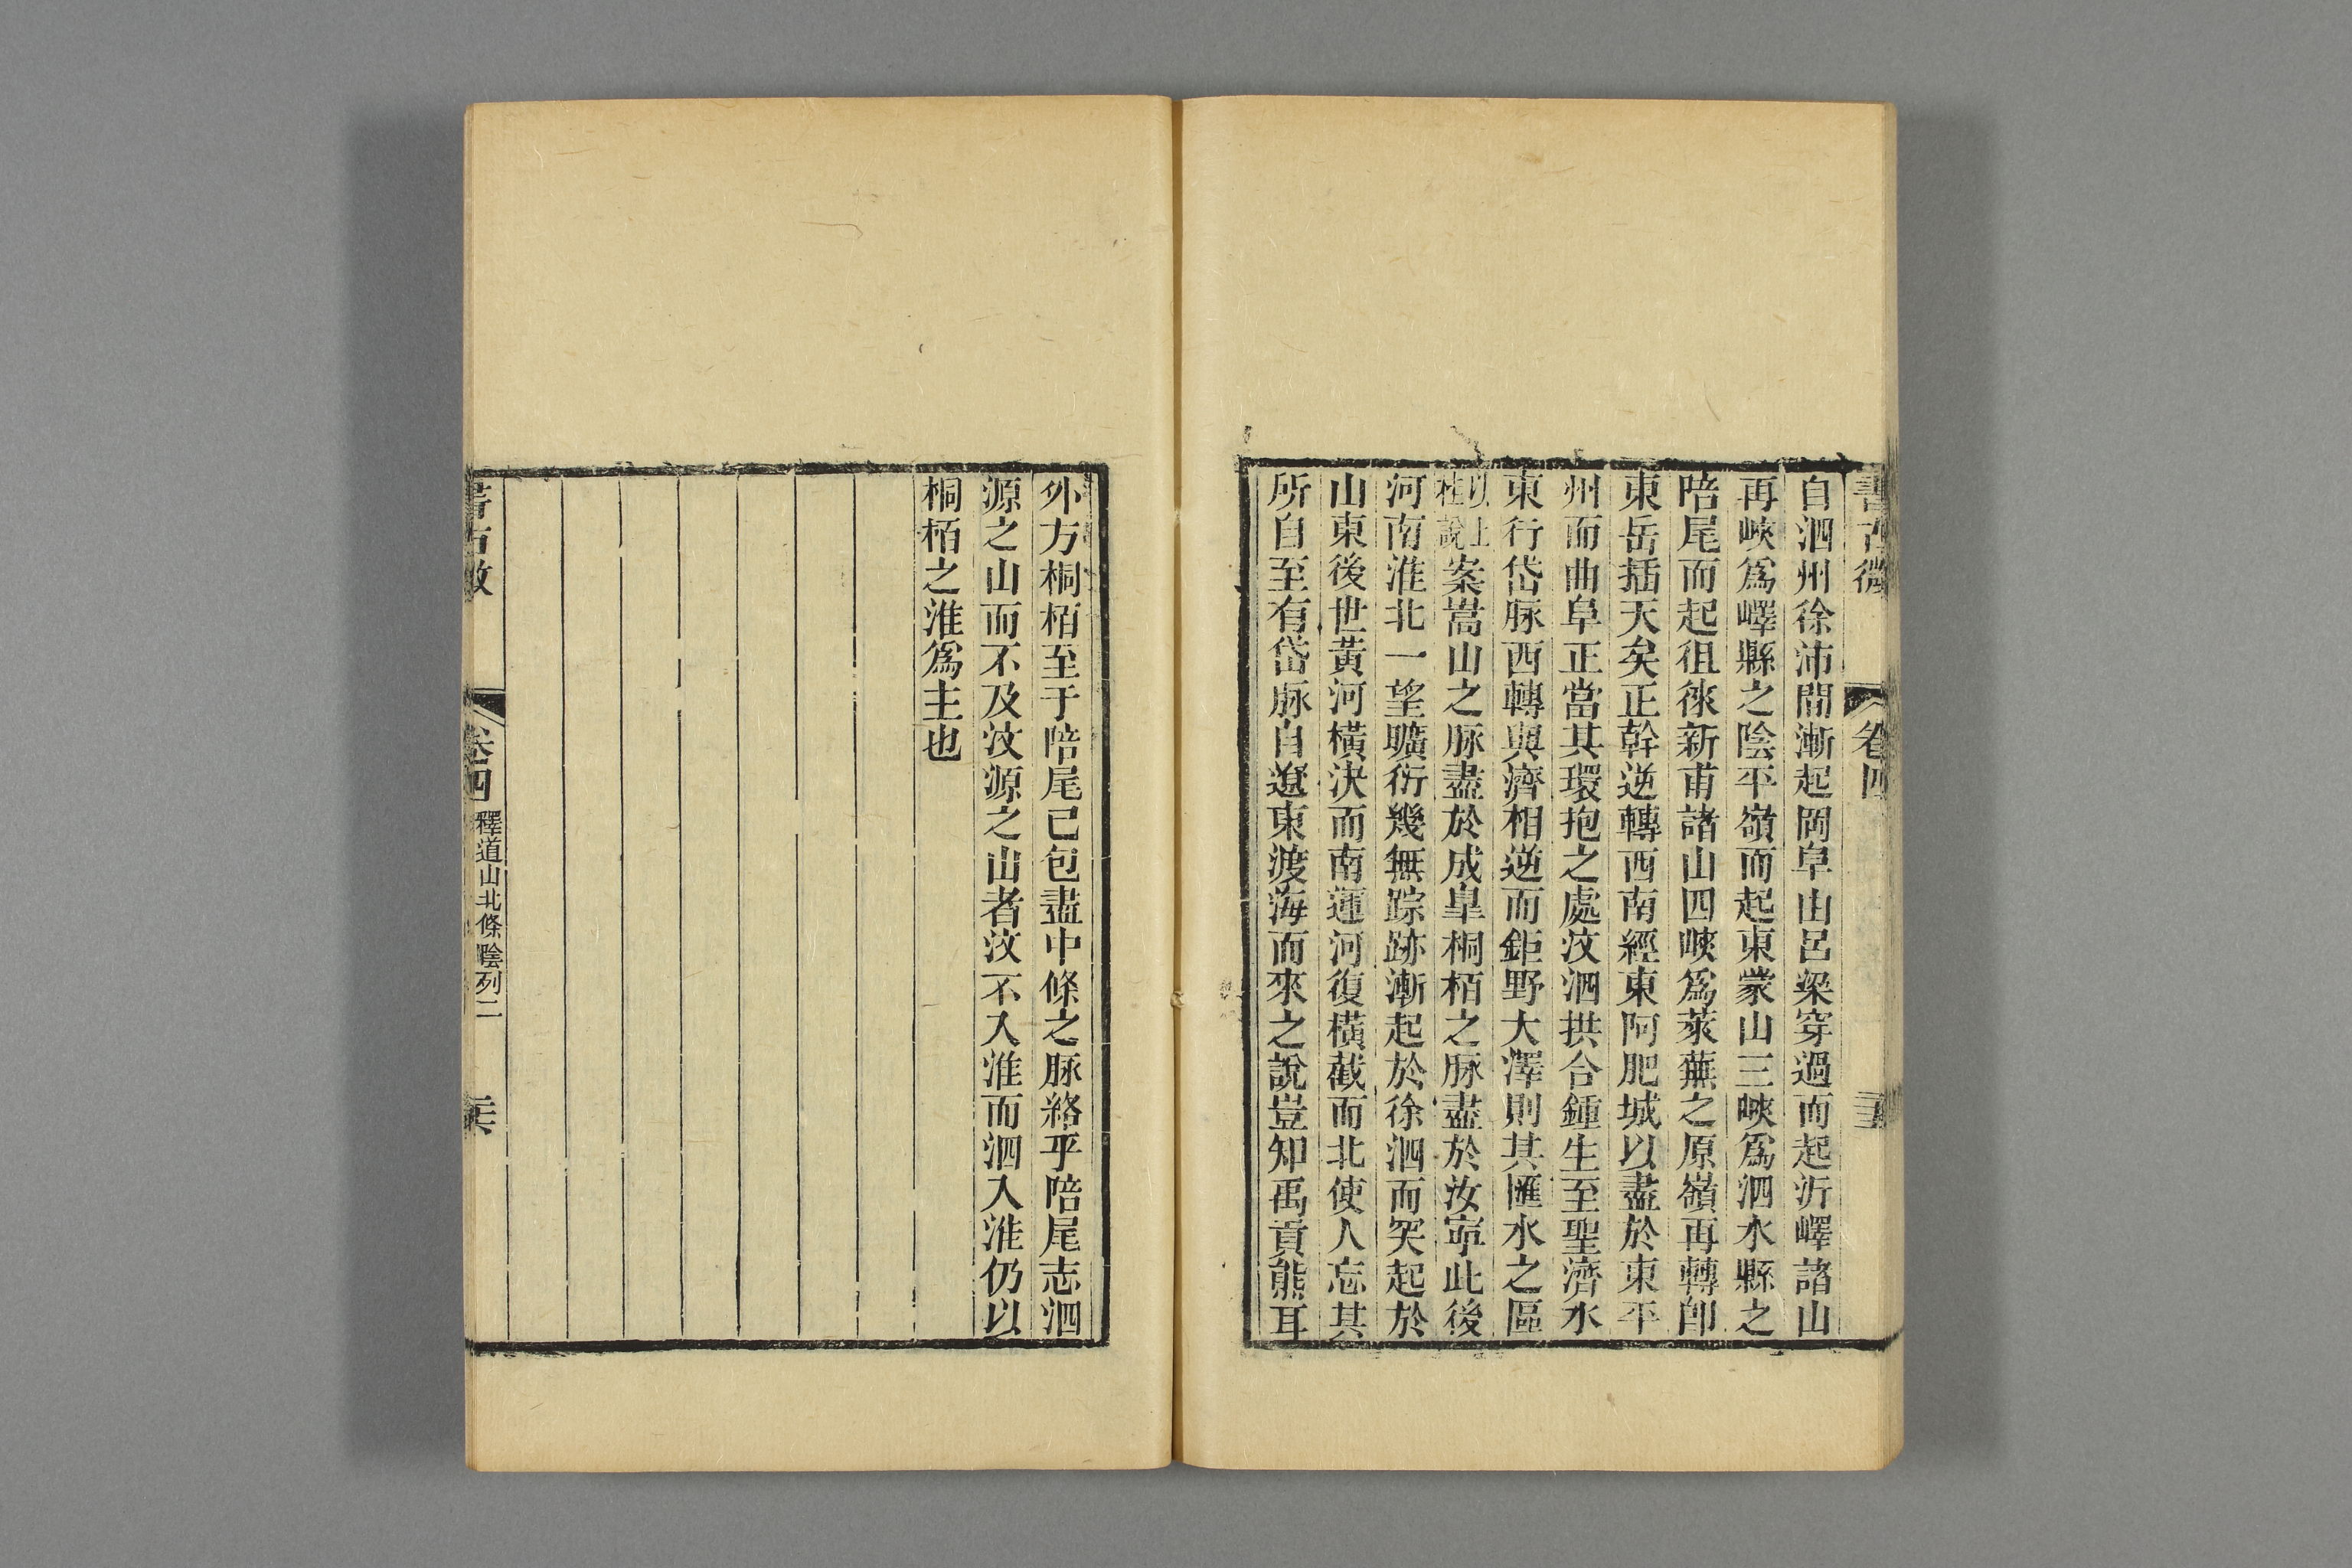 書古微 卷四
自泗州徐沛間漸起岡阜由呂梁穿過而起沂嶧諸山
再峽爲嶧縣之陰平嶺而起東蒙山三峽爲泗水縣之
陪尾而起徂徠新甫諸山四峽爲萊蕪之原嶺再轉卽
東岳插天矣正幹逆轉西南經東阿肥城以盡於東平
州而曲阜正當其環抱之處汶泗拱合鍾生至聖濟水
東行岱脉西轉與濟相逆而鉅野大澤則其匯水之區
以上
桂說案嵩山之脉盡於成臯桐栢之脉盡於汝寕此後
河南淮北一望曠衍幾無踪跡漸起於徐泗而突起於
山東後世黃河橫決而南運河復橫截而北使人忘其
所自至有岱脉自遼東渡海而來之說豈知禹貢熊耳
外方桐栢至于陪尾已包盡中條之脉絡乎陪尾志泗
源之山而不及汶源之山者汶不入淮而泗入淮仍以
桐栢之淮爲主也
書古微 卷四 釋道山北條陰列二 三六